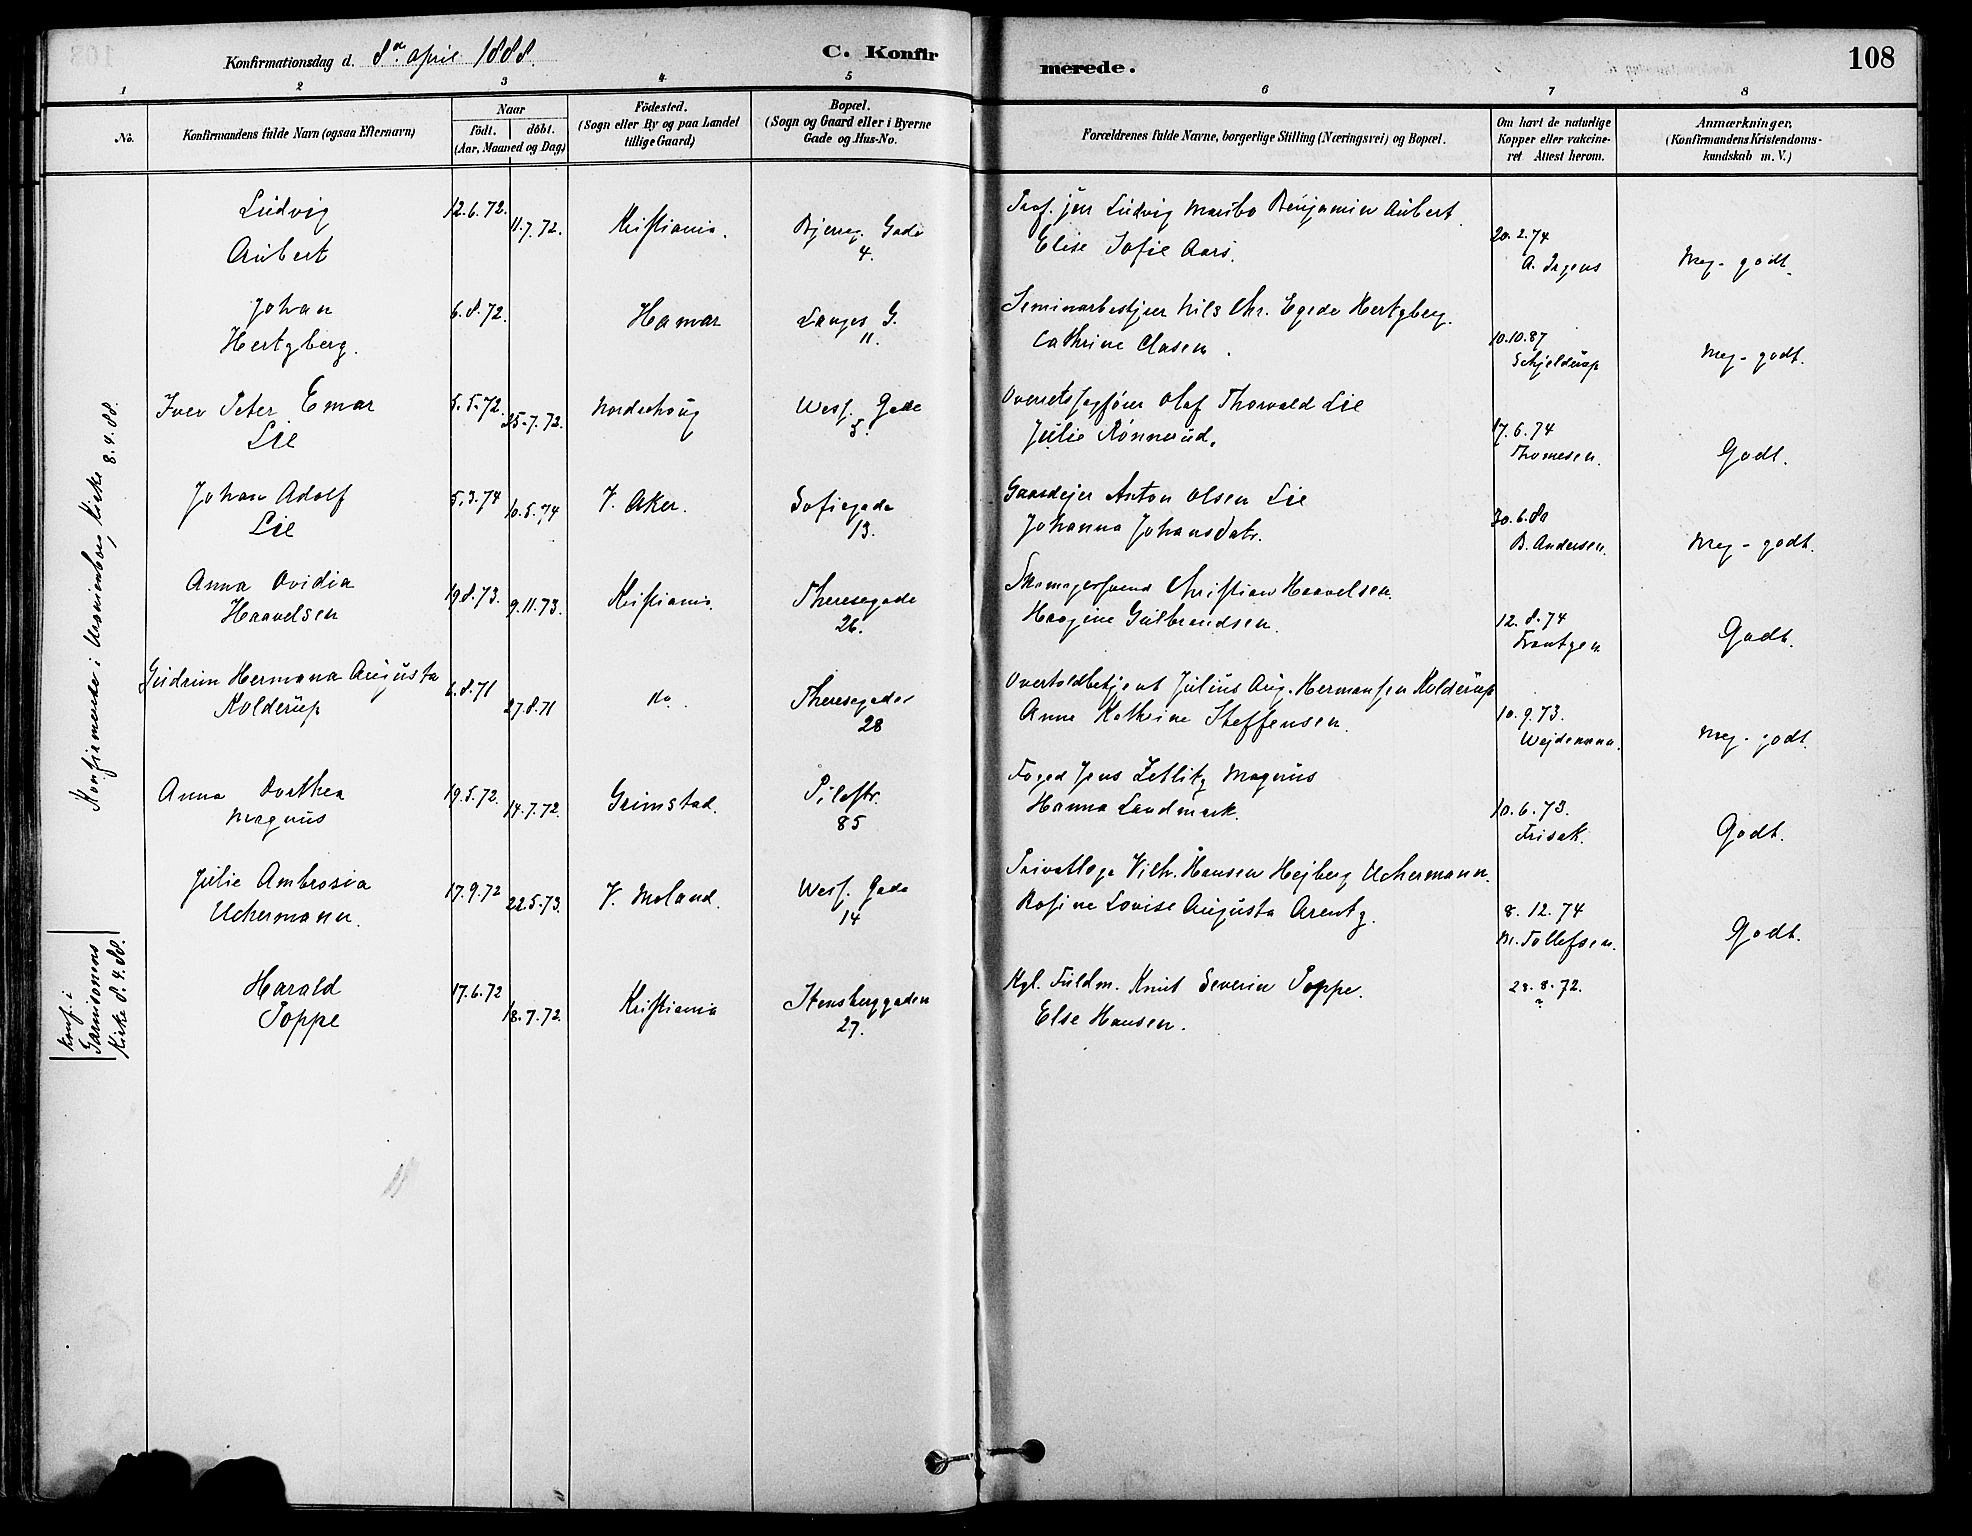 Konfirmationsdag d. 8de april 1888.
C. Konfirmerede.
108
1 2 3 4 5 6 7 8
No.
Konfirmandens fulde Navn (ogsaa Efternavn)
Naar
födt. döbt.
(Aar, Maaned og Dag)
Födested.
(Sogn eller By og paa Landet
tillige Gaard)
Bopæl.
(Sogn og Gaard eller i Byerne
Gade og Hus-No.
Forældrenes fulde Navne, borgerlige Stilling (Næringsvei) og Bopæl.
Om havt de naturlige
Kopper eller vakcine-
ret. Attest herom.
Anmærkninger,
(Konfirmandens Kristendoms-
kundskab m. V.)
Konfirmerede i Uranienborg Kirke 8.4.88.
Ludvig 12.6.72. 11.7.72. Kristiania. Bjerreg. Gade Prof. jur Ludvig Maribo Benjamin Aubert
Aubert 4. Elise Sofie Aars. 20.2.74 Meg. godt.
Johan 6.8.72. Hamar Langes G. Seminarbestyrer Nils Chr. Egede Hertzberg.
Hertzberg. 11. Cathrine Clasen. 10.10.87 Schjelderup Meg-godt.
Iver Peter Emar 5.5.72. 25.7.72. Norderhoug Wess. Gade Overretssagfører Olaf Thorvald Lie
Lie 5. Julie Rønnerud. 17.6.74 Thomesen. Godt.
Johan Adolf 5.3.74 10.5.74 V. Aker. Sofiegade Gaardejer Anton Olsen Lie
Lie 13. Johanna Johansdatr. 30.6.80 B. Andersen. Meg-godt.
Anna Ovidia 19.8.73. 9.11.73. Kristiania. Theresegade Skomagersvend Christian Haavelsen.
Haavelsen 26. Gulbrandsen. 12.8.74 Frantzen Godt.
Gudrun Hermana Augusta 6.8.71 27.8.71 do. Theresegade Overtoldbetjent Julius Aug. Hermansen Kolderup
Kolderup 28 Anne Kathrine Steffensen. 10.9.73. Wejdemann. Meg. godt.
Anna Dorthea 19.5.72. 14.7.72. Grimstad. Pilestr. Foged Jens Zetlitz Magnus
Magnus 85 Hanna Landmark. 10.6.73. Frisak. Godt.
Julie Ambrosia 17.9.72 22.5.73. V. Moland. Wess. Gade Privatlæge Vilh. Hansen Hejberg Uchermann.
Uchermann. 14 Rosine Lovise Augusta Arentz. 8.12.74 M. Tollefsen. Godt.
Konf. i
Garnisonens
Kirke 8.4.88.
Harald 17.6.72 18.7.72. Kristiania Stensberggaden Kgl. Fuldm. Knut Severin Poppe. 28.8.72.
Poppe 27. Else Hansen.